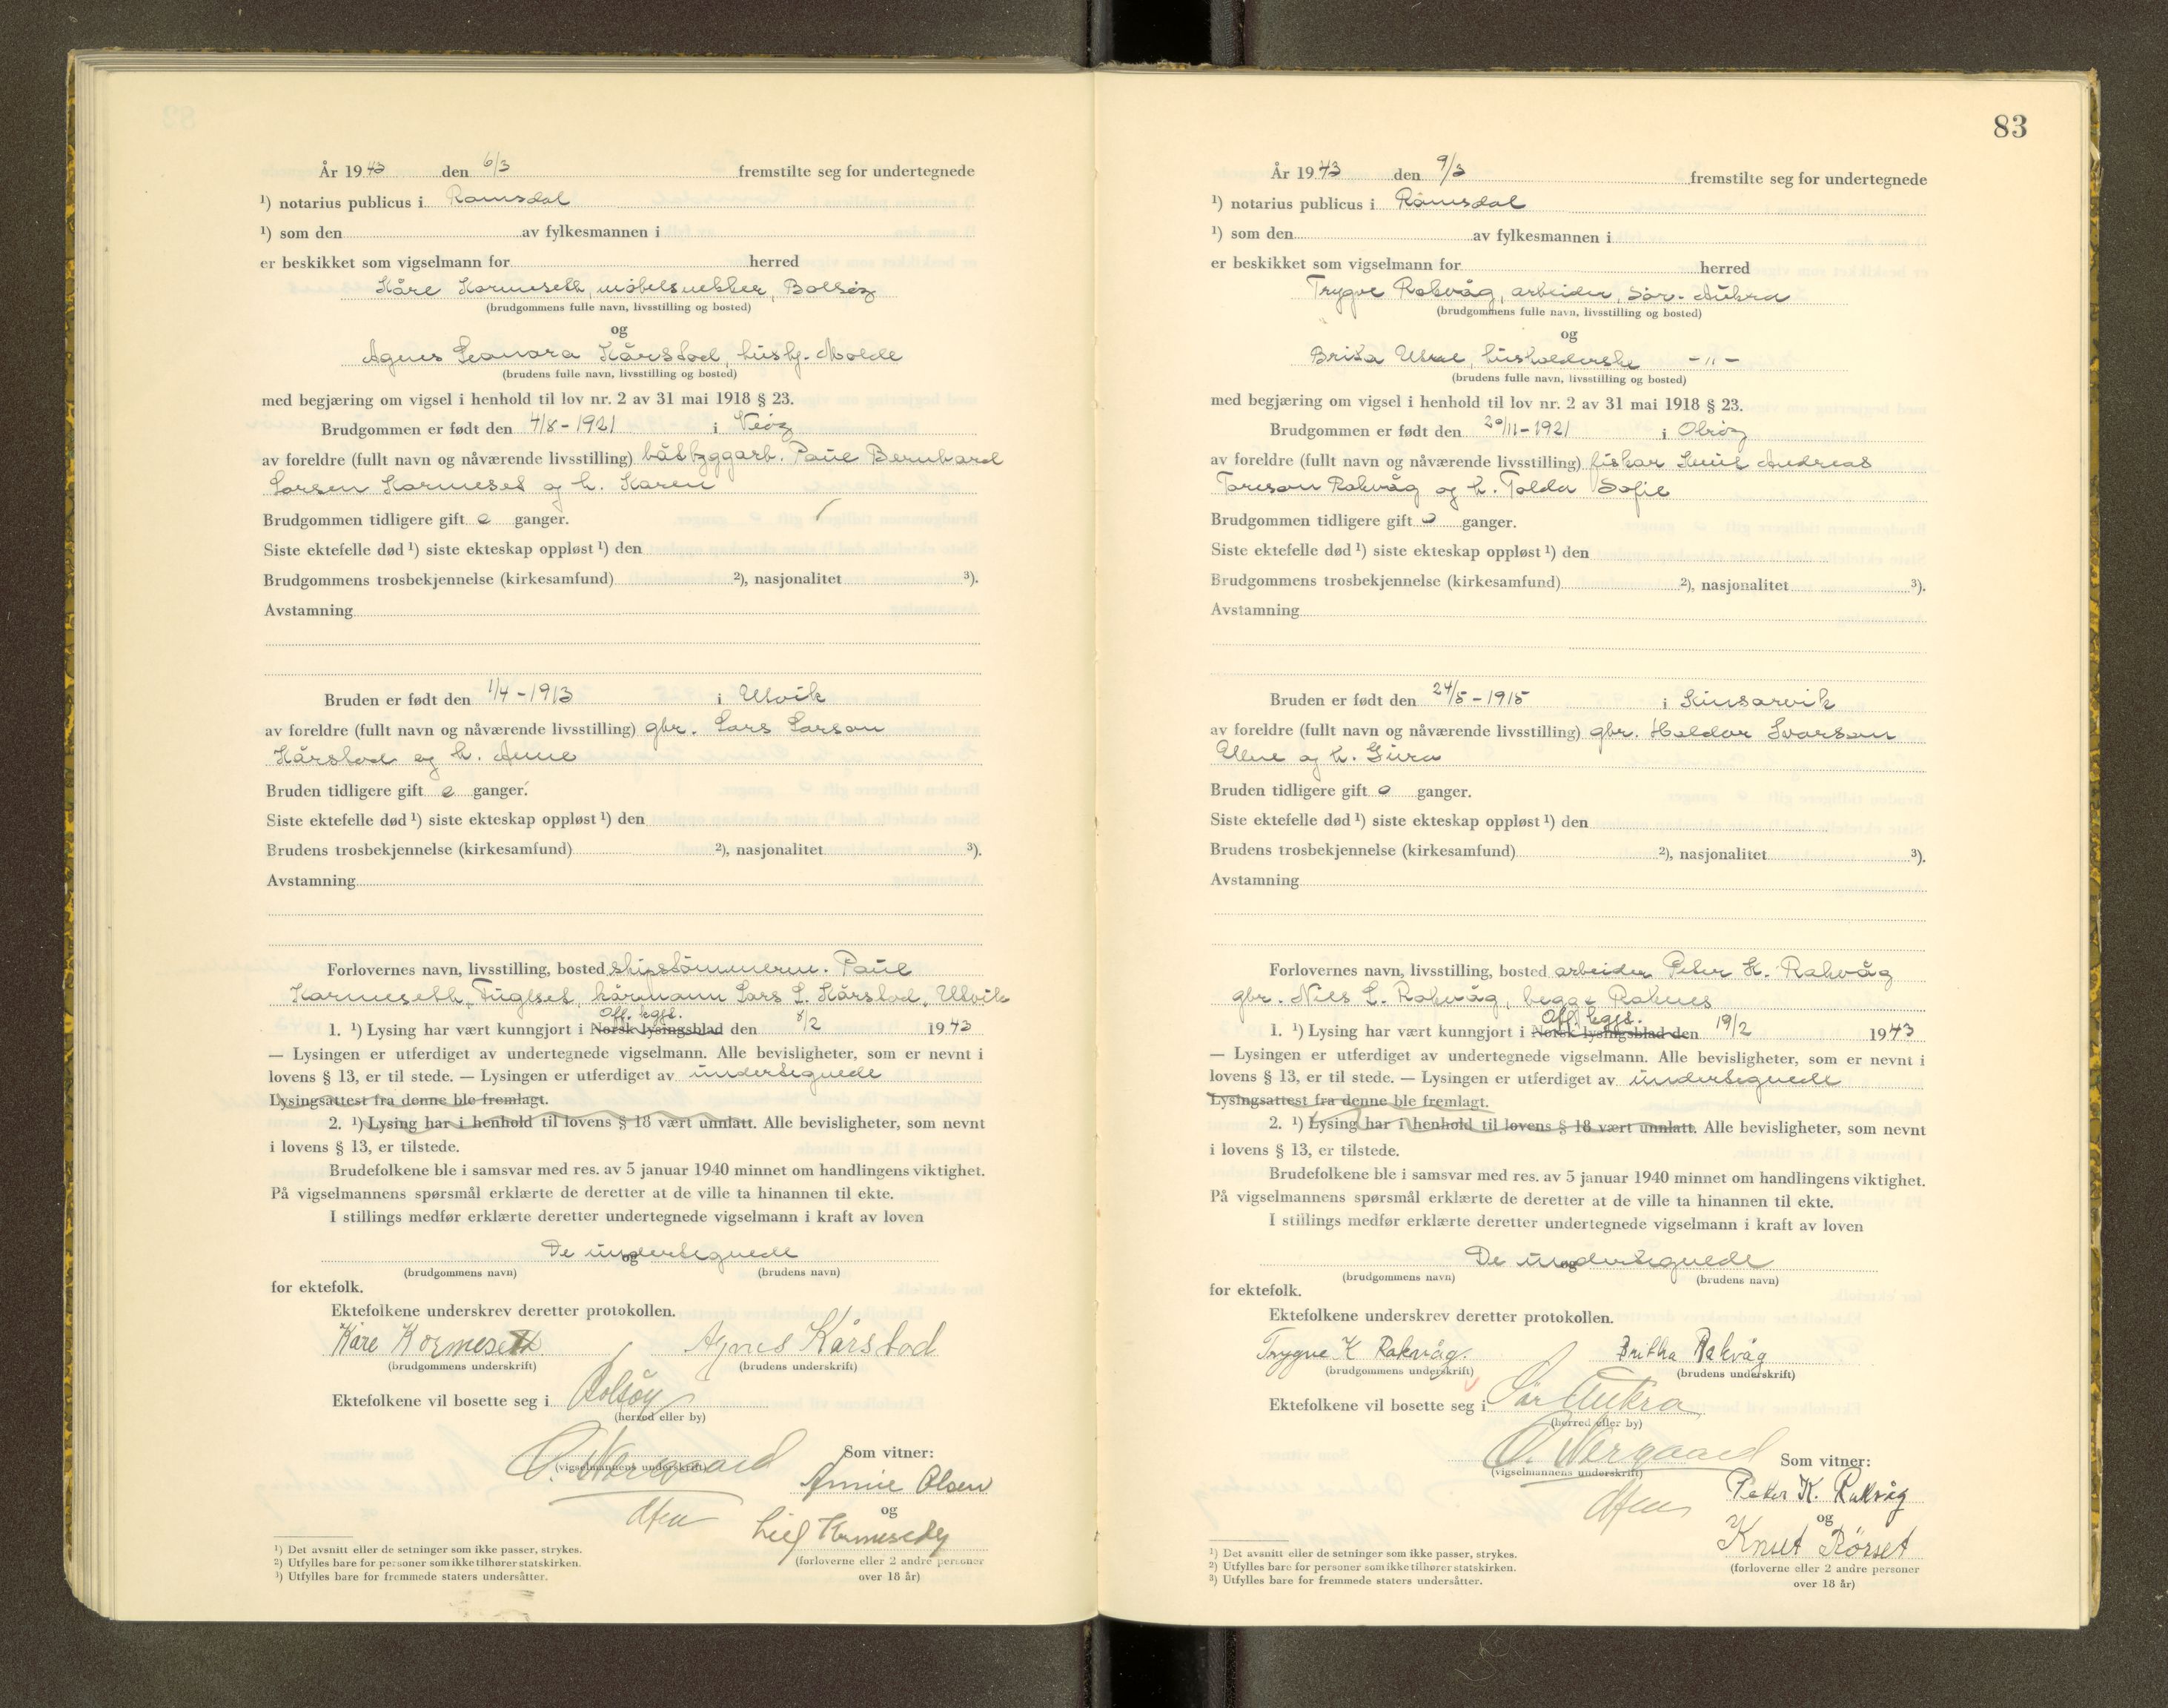 År 1943 den 6/3 fremstilte seg for undertegnede
¹) notarius publicus i Romsdal
¹) som den av fylkesmannen i
er beskikket som vigselmann for herred
Kåre Kormeseth, møbelsnekker, Bolsøy
(brudgommens fulle navn, livsstilling og bosted)
og
Agnes Leonora Kårstad, hushj. Molde
(brudens fulle navn, livsstilling og bosted)
med begjæring om vigsel i henhold til lov nr. 2 av 31 mai 1918 § 23.
Brudgommen er født den 4/8-1921 i Veøy
av foreldre (fullt navn og nåværende livsstilling) båtbyggarb. Paul Bernhard
Larsen Kormeset og h. Karen
Brudgommen tidligere gift 0 ganger.
Siste ektefelle død ¹) siste ekteskap oppløst ¹) den
Brudgommens trosbekjennelse (kirkesamfund) ²), nasjonalitet ³).
Avstamning
Bruden er født den 1/4-1913 i Ulvik
av foreldre (fullt navn og nåværende livsstilling) gbr. Lars Larson
Kårstad og h. Anne
Bruden tidligere gift 0 ganger.
Siste ektefelle død ¹) siste ekteskap oppløst ¹) den
Brudens trosbekjennelse (kirkesamfund) ²), nasjonalitet ³).
Avstamning
Forlovernes navn, livsstilling, bosted skipstømmerm. Paul
Kormeseth, Fuglset, kårmann Lars L. Kårstad, Ulvik
Off. kgjl.
1. ¹) Lysing har vært kunngjort i Norsk lysingsblad den 8/2 1943
— Lysingen er utferdiget av undertegnede vigselmann. Alle bevisligheter, som er nevnt i
lovens § 13, er til stede. — Lysingen er utferdiget av undertegnede
Lysingsattest fra denne ble fremlagt.
2. ¹) Lysing har i henhold til lovens § 18 vært unnlatt. Alle bevisligheter, som nevnt
i lovens § 13, er tilstede.
Brudefolkene ble i samsvar med res. av 5 januar 1940 minnet om handlingens viktighet.
På vigselmannens spørsmål erklærte de deretter at de ville ta hinannen til ekte.
I stillings medfør erklærte deretter undertegnede vigselmann i kraft av loven
De undertegnede
og
(brudgommens navn) (brudens navn)
for ektefolk.
Ektefolkene underskrev deretter protokollen.
Kåre Kormeseth Agnes Kårstad
(brudgommens underskrift) (brudens underskrift)
Ektefolkene vil bosette seg i Bolsøy
(herred eller by)
O. Nergaard
(vigselmannens underskrift)
Som vitner:
Annie Olsen
og
Leif
(forloverne eller 2 andre personer
over 18 år)
¹) Det avsnitt eller de setninger som ikke passer, strykes.
²) Utfylles bare for personer som ikke tilhører statskirken.
³) Utfylles bare for fremmede staters undersåtter.
83
År 1943 den 9/3 fremstilte seg for undertegnede
¹) notarius publicus i Romsdal
¹) som den av fylkesmannen i
er beskikket som vigselmann for herred
Trygve Rakvåg, arbeider, Sør-Aukra
(brudgommens fulle navn, livsstilling og bosted)
og
Brita Utne, husholderske -"-
(brudens fulle navn, livsstilling og bosted)
med begjæring om vigsel i henhold til lov nr. 2 av 31 mai 1918 § 23.
Brudgommen er født den 20/11-1921 i Otrøy
av foreldre (fullt navn og nåværende livsstilling) fiskar Knut Andreas
Toreson Rakvåg og h. Tolda Sofie
Brudgommen tidligere gift 0 ganger.
Siste ektefelle død ¹) siste ekteskap oppløst ¹) den
Brudgommens trosbekjennelse (kirkesamfund) ²), nasjonalitet ³).
Avstamning
Bruden er født den 24/5-1915 i Kinsarvik
av foreldre (fullt navn og nåværende livsstilling) gbr. Haldor Ivarson
Utne og h. Guro
Bruden tidligere gift 0 ganger.
Siste ektefelle død ¹) siste ekteskap oppløst ¹) den
Brudens trosbekjennelse (kirkesamfund) ²), nasjonalitet ³).
Avstamning
Forlovernes navn, livsstilling, bosted arbeider Peter K. Rakvåg
gbr. Nils L. Rakvåg, begge Raknes
Off. kgjl.
1. ¹) Lysing har vært kunngjort i Norsk lysingsblad den 19/2 1943
— Lysingen er utferdiget av undertegnede vigselmann. Alle bevisligheter, som er nevnt i
lovens § 13, er til stede. — Lysingen er utferdiget av undertegnede
Lysingsattest fra denne ble fremlagt.
2. ¹) Lysing har i henhold til lovens § 18 vært unnlatt. Alle bevisligheter, som nevnt
i lovens § 13, er tilstede.
Brudefolkene ble i samsvar med res. av 5 januar 1940 minnet om handlingens viktighet.
På vigselmannens spørsmål erklærte de deretter at de ville ta hinannen til ekte.
I stillings medfør erklærte deretter undertegnede vigselmann i kraft av loven
De undertegnede
og
(brudgommens navn) (brudens navn)
for ektefolk.
Ektefolkene underskrev deretter protokollen.
Trygve K Rakvåg. Britha Rakvåg
(brudgommens underskrift) (brudens underskrift)
Ektefolkene vil bosette seg i Sør Aukra
(herred eller by)
O. Nergaard
(vigselmannens underskrift)
Som vitner:
Peter K. Rakvåg
og
Knut Rörset
(forloverne eller 2 andre personer
over 18 år)
¹) Det avsnitt eller de setninger som ikke passer, strykes.
²) Utfylles bare for personer som ikke tilhører statskirken.
³) Utfylles bare for fremmede staters undersåtter.